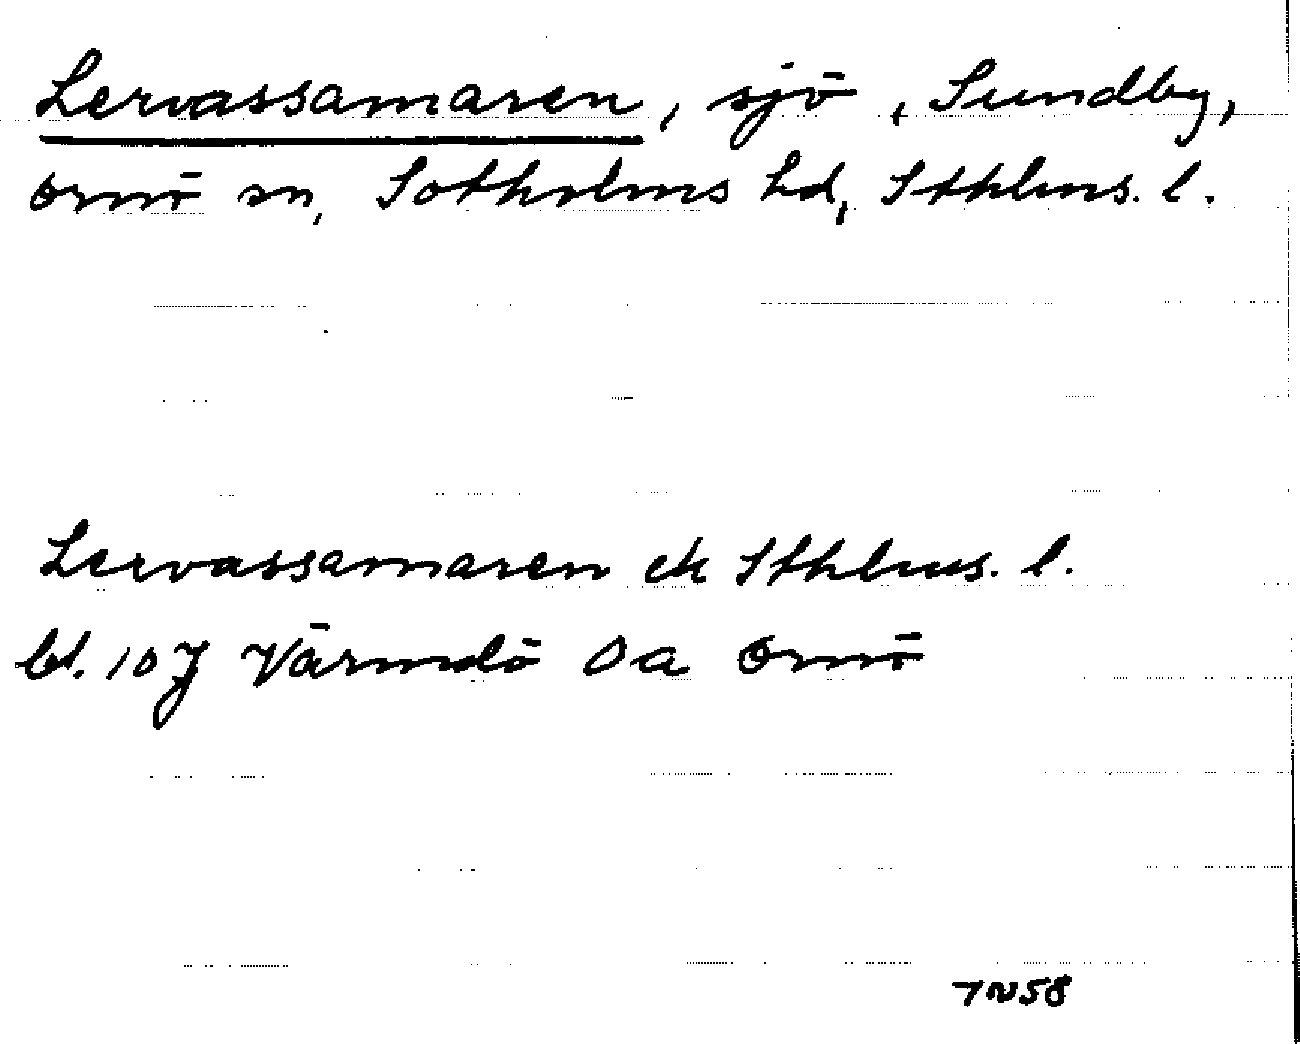 Lervassamaren, sjö, Sundby,
Ornö sn, Sotholms hd, Sthlms. l.
Lervassamaren ek Sthlms. l.
bl. 107 Värmdö Oa Ornö
7N58